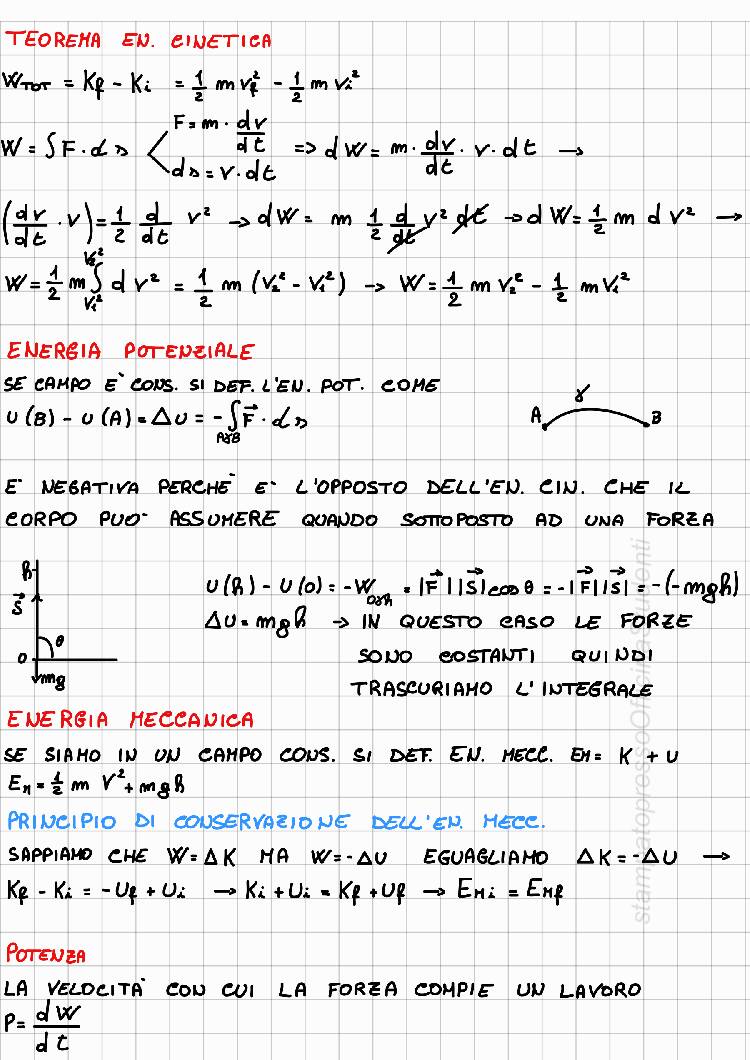 TEOREMA EN. CINETICA
W_TOT = Kf - Ki = 1/2 m vf² - 1/2 m vi²
W = ∫ F · ds < F = m · dv/dt ; ds = v · dt => dW = m · dv/dt · v · dt →
(dv/dt · v) = 1/2 d/dt v² → dW = m 1/2 d/dt v² dt → dW = 1/2 m d v² →
W = 1/2 m ∫_{V1²}^{V2²} d v² = 1/2 m (V2² - V1²) → W = 1/2 m V2² - 1/2 m V1²
ENERGIA POTENZIALE
SE CAMPO E' CONS. SI DEF. L'EN. POT. COME
U(B) - U(A) = ΔU = - ∫_{AγB} F⃗ · ds
A γ B
E' NEGATIVA PERCHE' E' L'OPPOSTO DELL'EN. CIN. CHE IL
CORPO PUO' ASSUMERE QUANDO SOTTOPOSTO AD UNA FORZA
h S⃗ θ 0 mg
U(h) - U(0) = -W_{0γh} = |F⃗||S⃗| cos θ = -|F⃗||S⃗| = -(-mgh)
ΔU = mgh → IN QUESTO CASO LE FORZE
SONO COSTANTI QUINDI
TRASCURIAMO L'INTEGRALE
ENERGIA MECCANICA
SE SIAMO IN UN CAMPO CONS. SI DEF. EN. MECC. EM = K + U
E_M = 1/2 m V² + mgh
PRINCIPIO DI CONSERVAZIONE DELL'EN. MECC.
SAPPIAMO CHE W = ΔK MA W = -ΔU EGUAGLIAMO ΔK = -ΔU →
Kf - Ki = -Uf + Ui → Ki + Ui = Kf + Uf → E_Mi = E_Mf
POTENZA
LA VELOCITA' CON CUI LA FORZA COMPIE UN LAVORO
P = dW/dt